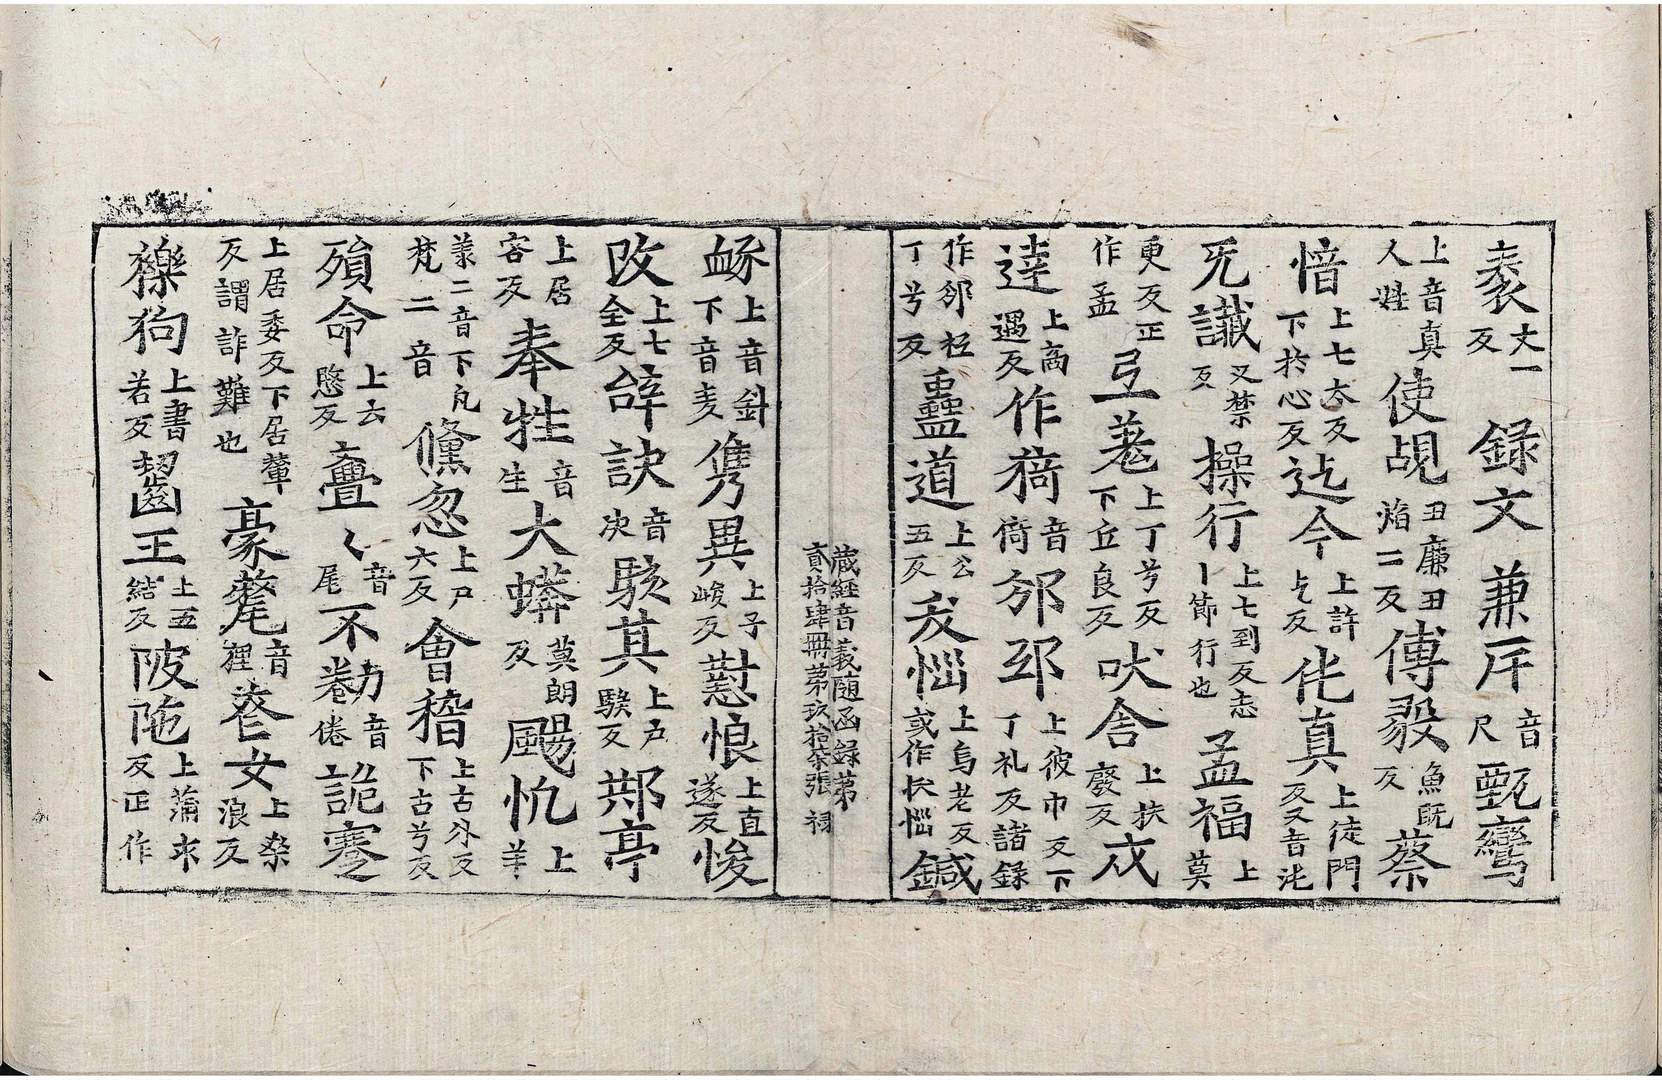 袠丈一反錄文兼斥音尺甄鸞
上音真人姓使覘丑廉丑焰二反傅毅魚旣反蔡
愔上七太反下於心反迄今上許乞反佗真上徒門反又音沌
旡讖又禁反操行上七到反志丨節行也孟福上莫
更反正作孟㢧著上丁兮反下丘良反吠舍上扶廢反戍
達上啇遇反作䄎音衛邠邳上彼巾反下丁礼反諸錄
作郤柾丁兮反蠱道上公五反㕛惱上烏老反或作㕛惱鍼
藏經音義隨函錄第貳拾肆冊第玖拾柒張 祠
䘐上音斜下音麦儁異上子峻反懟悢上直遂反悛
改上七全反辝訣音决駭其上戶駭反鄈亭
上居容反奉牲音生大蟒莫朗反颺㤺上羊
羕二音下凡梵二音儵忽上尸六反會稽上古外反下古兮反
殞命上云愍反亹〻音尾不勌音倦詭蹇
上居委反下居輦反謂詐難也豪氂音裡蒼女上桒浪反
檪狗上書若反齧王上五結反陂陁上蒲禾反正作